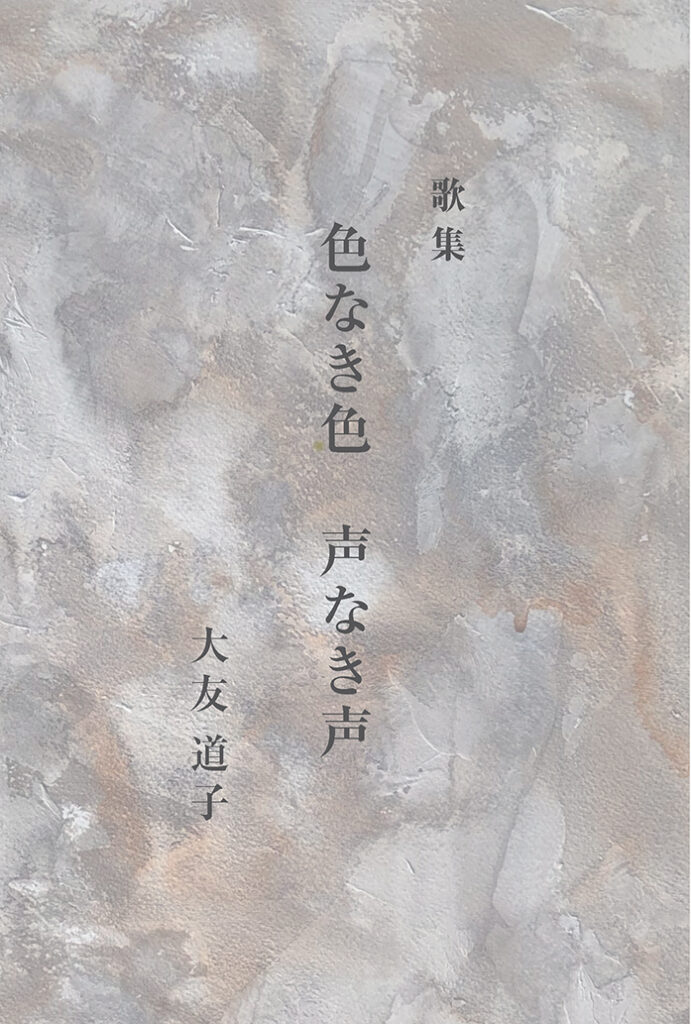 歌集
色なき色　声なき声
大友 道子